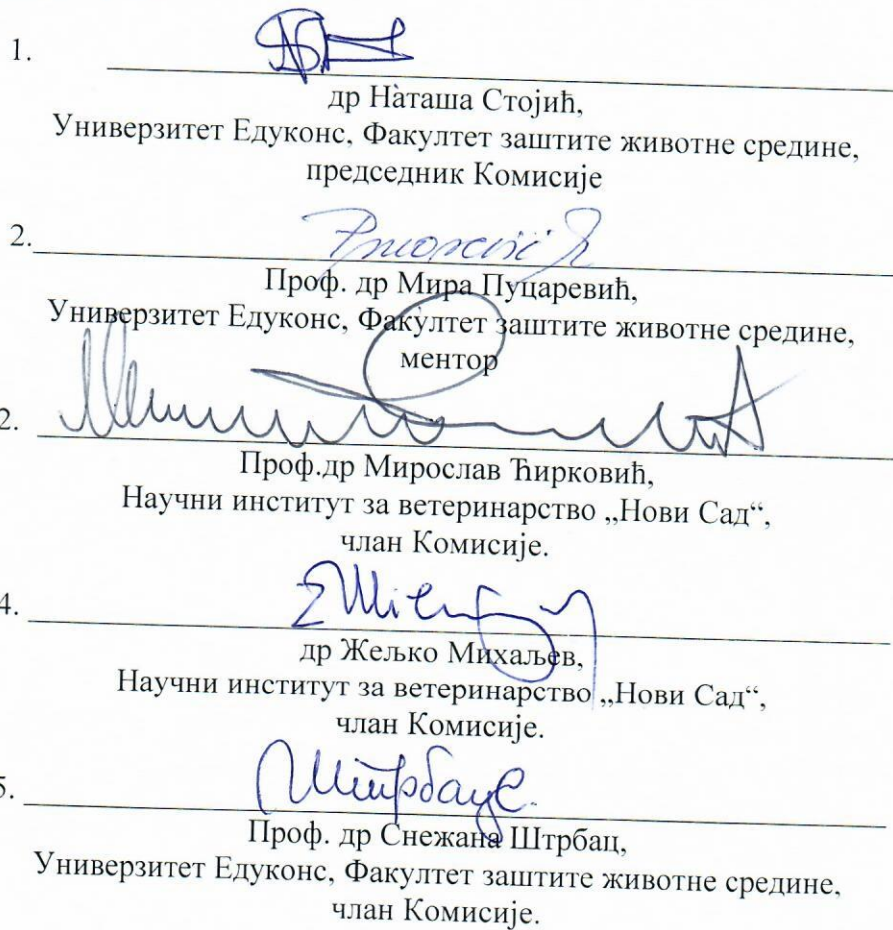 1.
др Наташа Стојић,
Универзитет Едуконс, Факултет заштите животне средине,
председник Комисије
2.
Проф. др Мира Пуцаревић,
Универзитет Едуконс, Факултет заштите животне средине,
ментор
2.
Проф.др Мирослав Ћирковић,
Научни институт за ветеринарство „Нови Сад“,
члан Комисије.
4.
др Жељко Михаљев,
Научни институт за ветеринарство „Нови Сад“,
члан Комисије.
5.
Проф. др Снежана Штрбац,
Универзитет Едуконс, Факултет заштите животне средине,
члан Комисије.